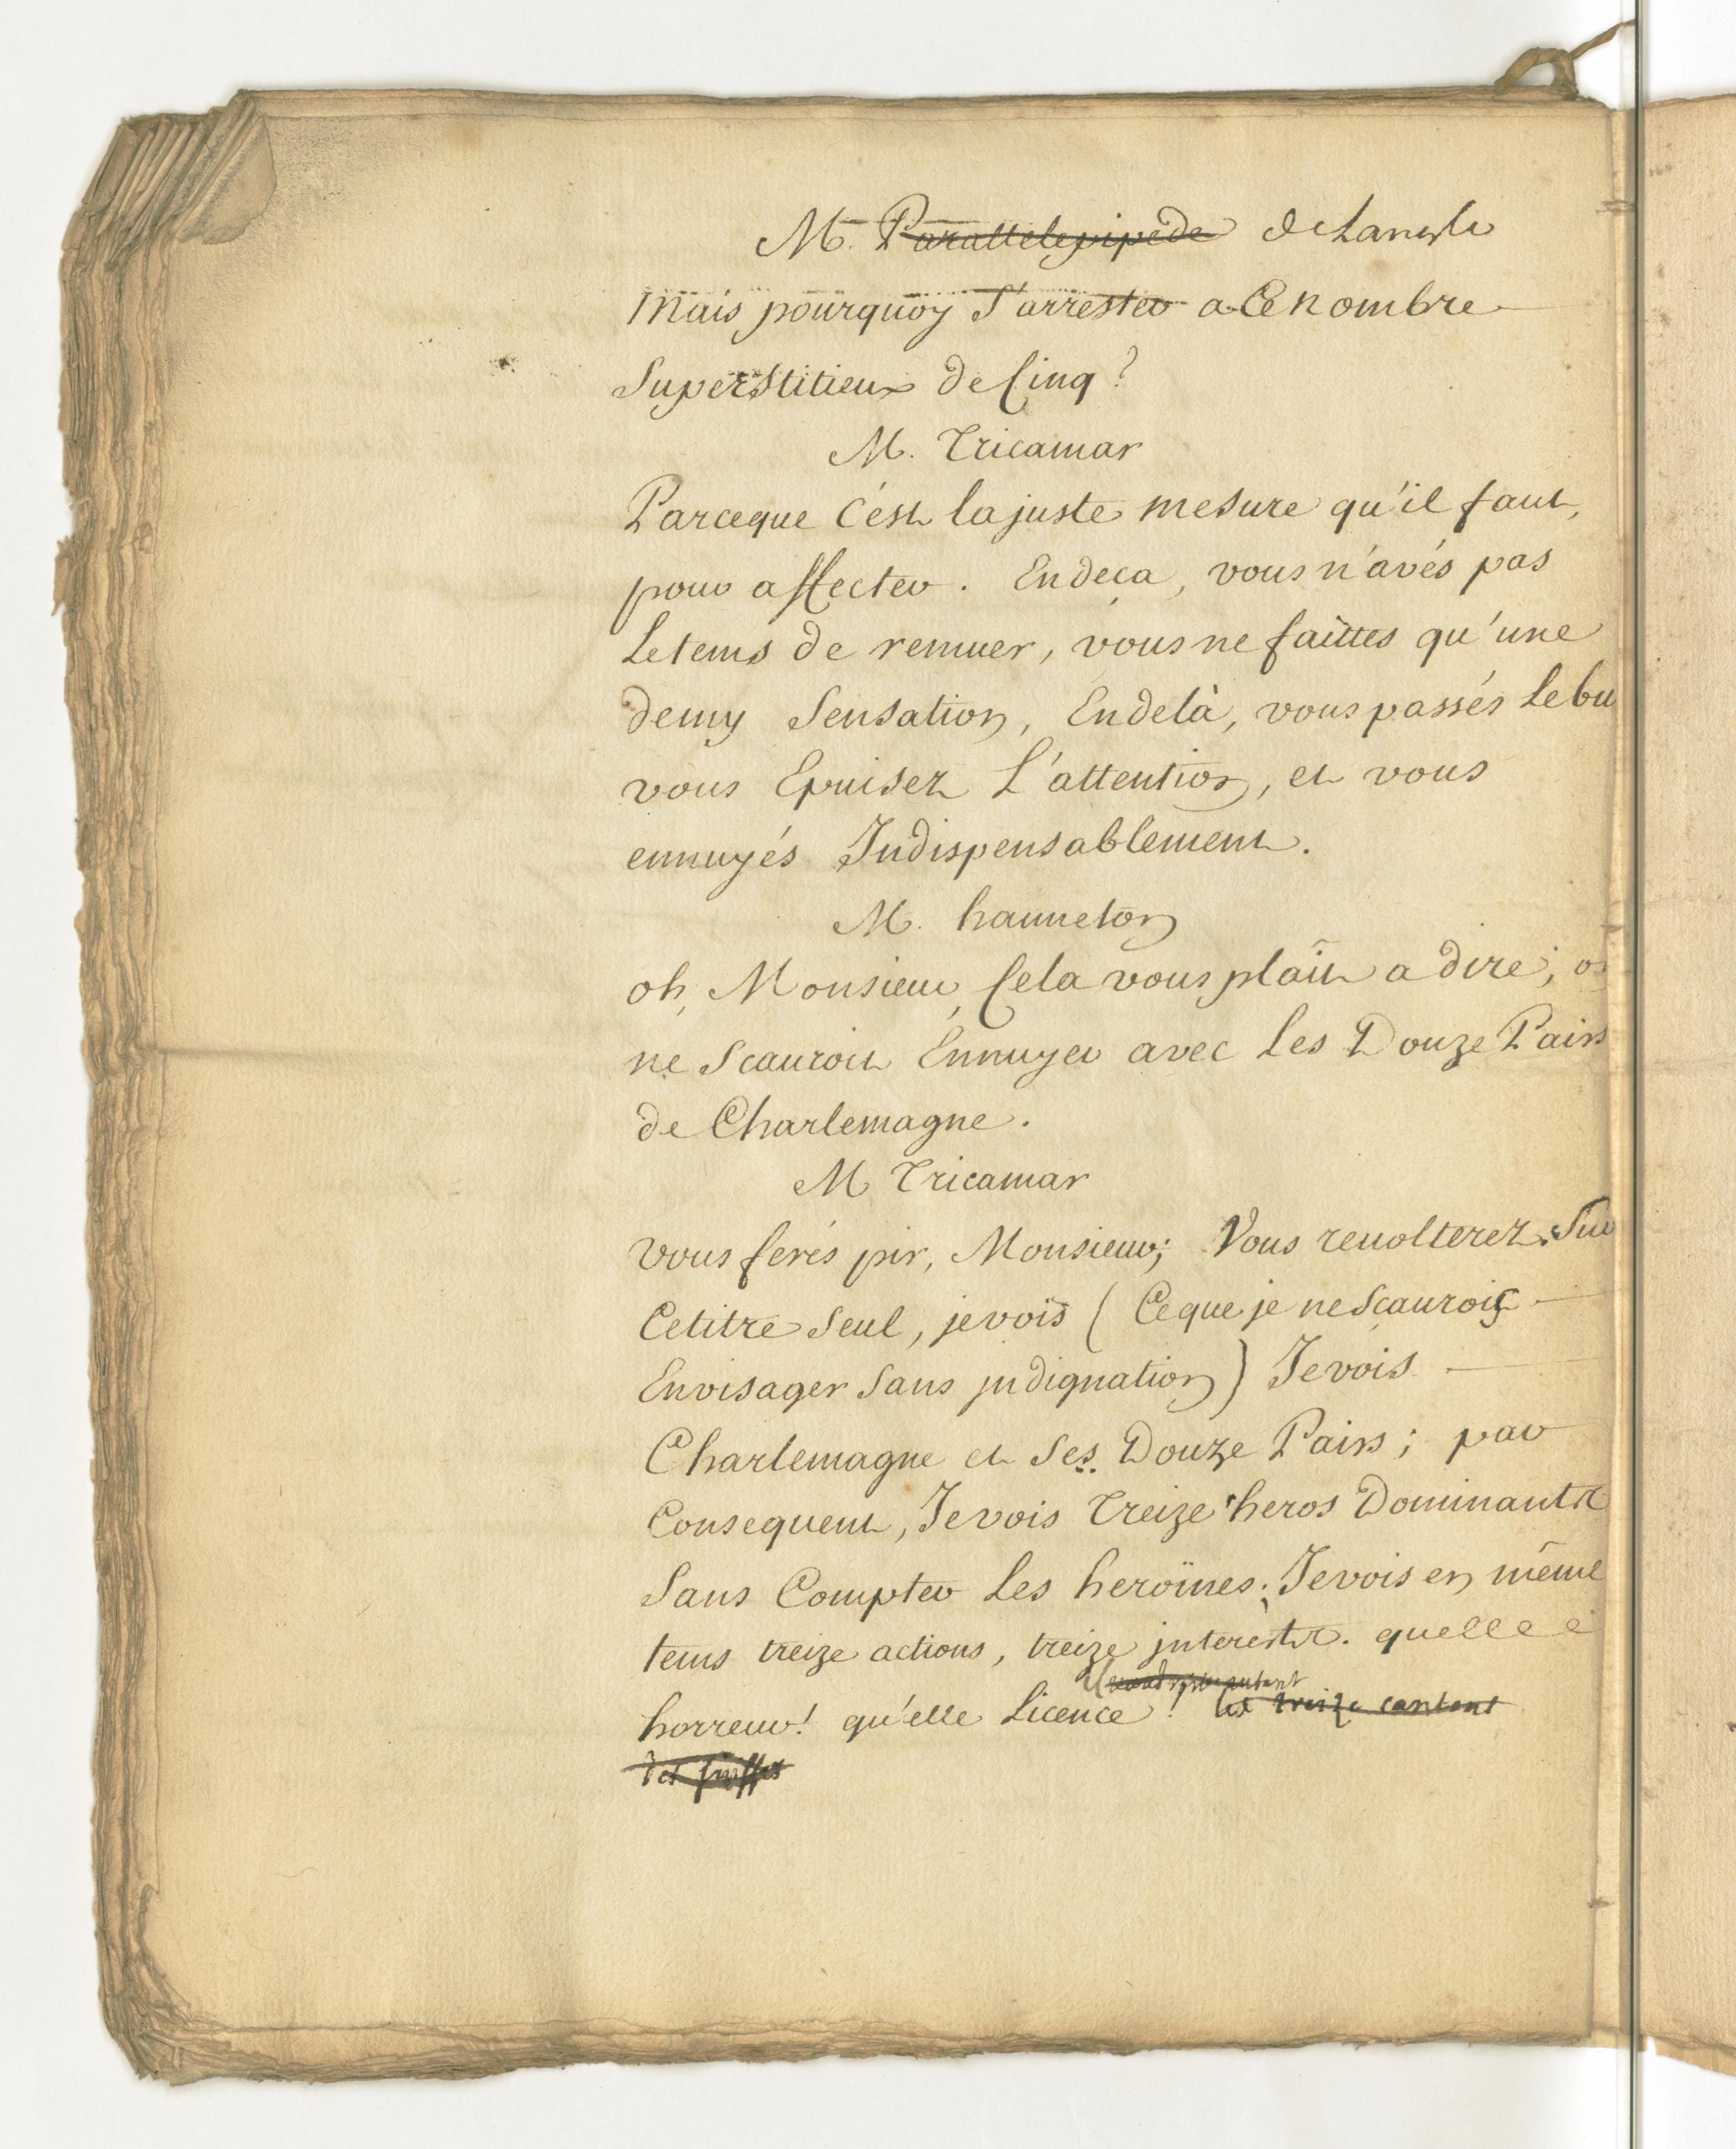 M. Parallelepipede
Mais pourquoy S'arrester a Ce nombre
Superstitieux de Cinq?
M. Tricamar
Parceque C'est la juste mesure qu'il faut,
pour affecter. En deça, vous n'avés pas
Le tems de remuer, vous ne faittes qu'une
demy Sensation, En delà, vous passés Le bu
vous Epuisez L'attention, et vous
ennuyés Indispensablement.
M. hanneton
oh, Monsieur, Cela vous plaît a dire; o
ne Scauroit Ennuyer avec Les Douze Pairs
de Charlemagne.
M Tricamar
vous ferés pir, Monsieur; Vous revolterez. Sur
Ce titre Seul, je vois ( Ce que je ne Scaurois
Envisager Sans indignation ) Je vois
Charlemagne et Ses Douze Pairs; par
Consequent, Je vois Treize heros Dominants
Sans Compter Les heroïnes; Je vois en même
tems treize actions, treize interêts. quelle
horreur! qu'elle Licence! les treize cantons
des suisses